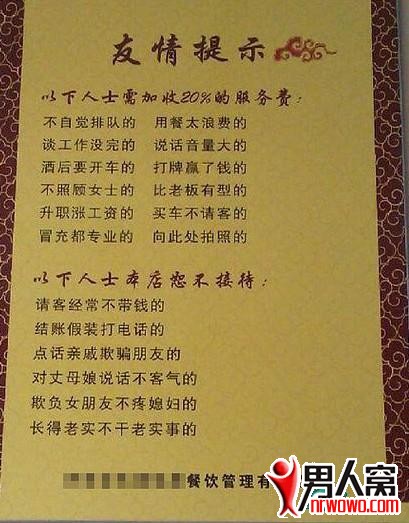 友情提示
以下人士需加收20%的服务费:
不自觉排队的 用餐太浪费的
谈工作没完的 说话音量大的
酒后要开车的 打牌赢了钱的
不照顾女士的 比老板有型的
升职涨工资的 买车不请客的
冒充都专业的 向此处拍照的
以下人士本店恕不接待:
请客经常不带钱的
结账假装打电话的
点话亲戚欺骗朋友的
对丈母娘说话不客气的
欺负女朋友不疼媳妇的
长得老实不干老实事的
餐饮管理有
男人窝
nrwowo.com